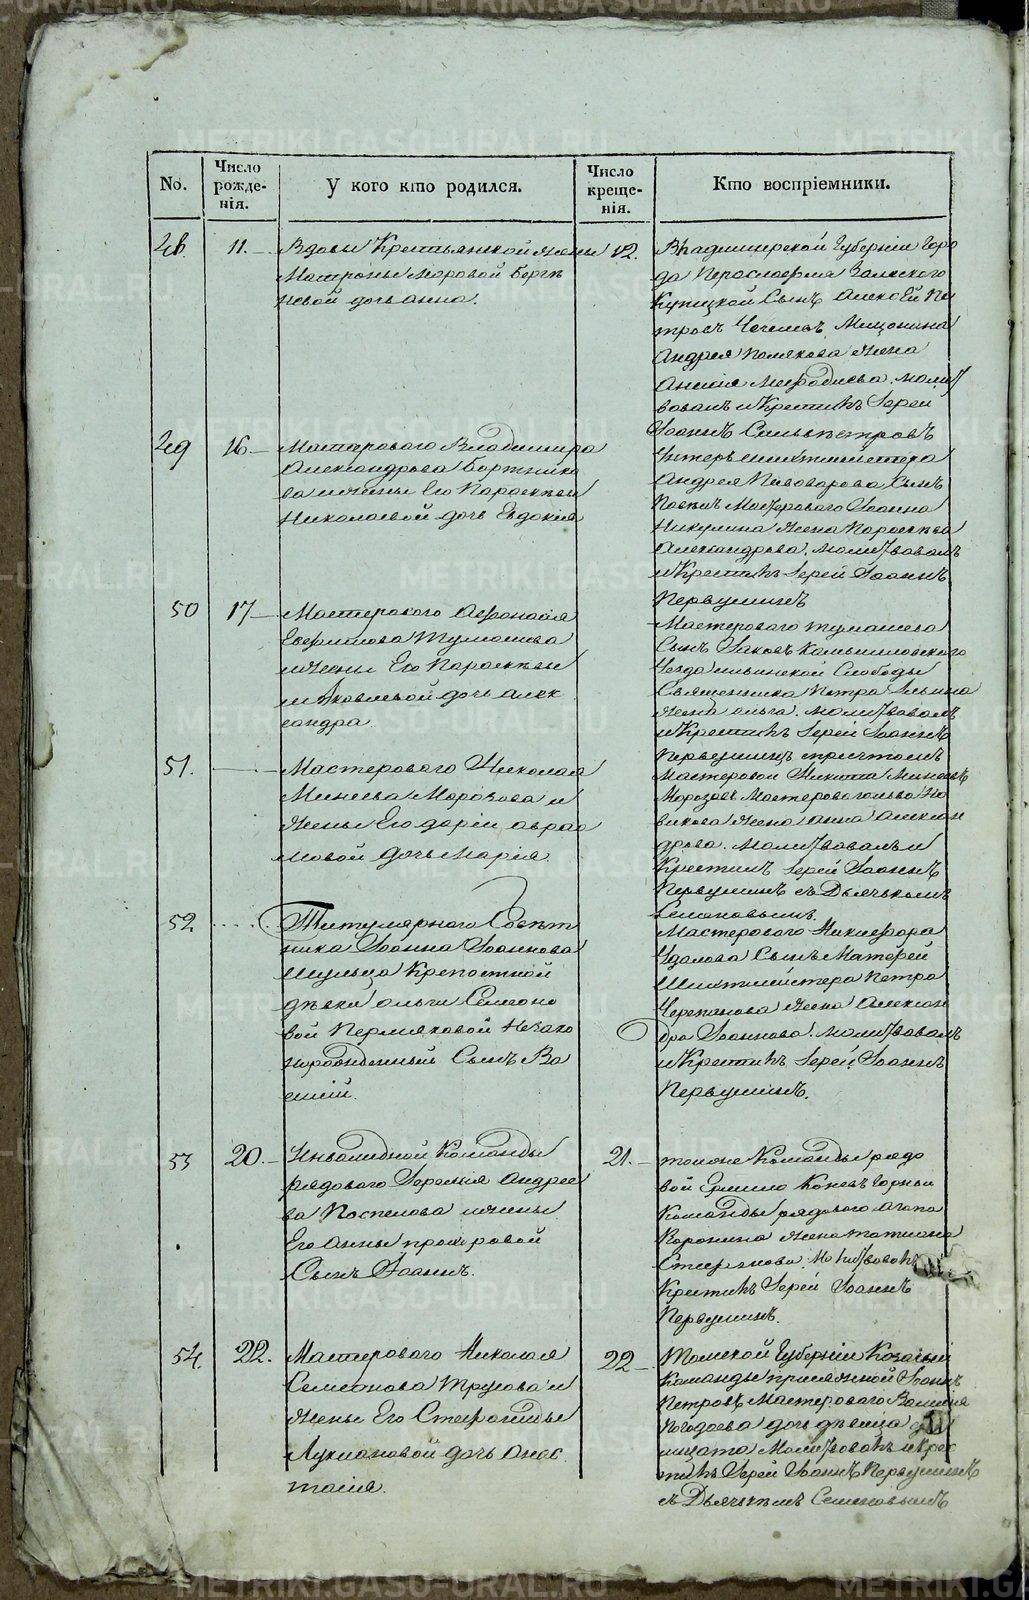 No.
Число рожде- нія.
У кого кто родился.
Число креще- нія.
Кто воспріемники.
48. 11. Вдовы Крестьянской жены 12.
Матроны Лазаровой
дочь анна.
Владимирской Губерніи Горо
да Залеского
Купецкой Сынъ Алексѣй Пе
тровъ Мещанина
Андрея Полякова жена
Анисія Мефодиева. молит
вовалъ и Крестилъ Іерей
Іоаннъ Сильвестровъ
49 16. Мастероваго Владимира
Александрова
ва и жены Его Параскевы
Николаевой дочь Евдокія
Унтеръ шихтмейстера
Андрея Пивоварова Сынъ
Мастероваго Іоанна
Никулина жена Параскева
Александрова. молитвовалъ
и Крестилъ Іерей Іоаннъ
Первушинъ
50 17 Мастероваго Афонасія
Евфимова Тумашева
и жены Его Параскевы
Яковлевой дочь Алек
сандра.
Мастероваго Тумашева
Сынъ Яковъ Камышловского
Уезда ильинской Слободы
Священника Петра Ильина
жена Ольга. молитвовалъ
и Крестилъ Іерей Іоаннъ
Первушинъ
51. Мастероваго Николая
Минеева Морозова и
жены Его Дарьи Авраа
мовой дочь Марія.
Мастеровой Никита Минеевъ
Морозовъ Мастероваго Но
викова жена Анна Алексан
дрова. молитвовалъ и
Крестилъ Іерей Іоаннъ
Первушинъ съ Дьячькомъ
Семеновымъ.
52. Титулярного Совѣт
ника Іоанна Іоаннова
Шульца Крепостной
дѣвки Ольги Семено
вой Пермяковой незако
норожденный Сынъ Ва
силій.
Мастероваго Никифора
Удалова Сынъ
Шихтмейстера Петра
Черепанова жена Алексан
дра Іоаннова. молитвовалъ
и Крестилъ Іерей Іоаннъ
Первушинъ.
53 20. Инвалидной Команды 21.
рядового Іеремія Андрее
ва Поспелова и жены
Его Анны
Сынъ Іоаннъ.
тоиже Команды рядо
вой Коневъ Горной
Команды рядового Агапа
Коронина жена Татиана
Молитвовалъ
Крестилъ Іерей Іоаннъ
Первушинъ.
54. 22. Мастероваго Николая 22
Семенова Трусова и
жены Его Стефаниды
Лукиановой дочь Анас
тасія.
Томской Губерніи Козачьи
Команды Іоаннъ
Петровъ Мастероваго Василія
Погодаева дочь дѣвица
Молитвовалъ и Крес
тилъ Іерей Іоаннъ Первушинъ
съ Дьячькомъ Семеновымъ
METRIKI.GASO-URAL.RU